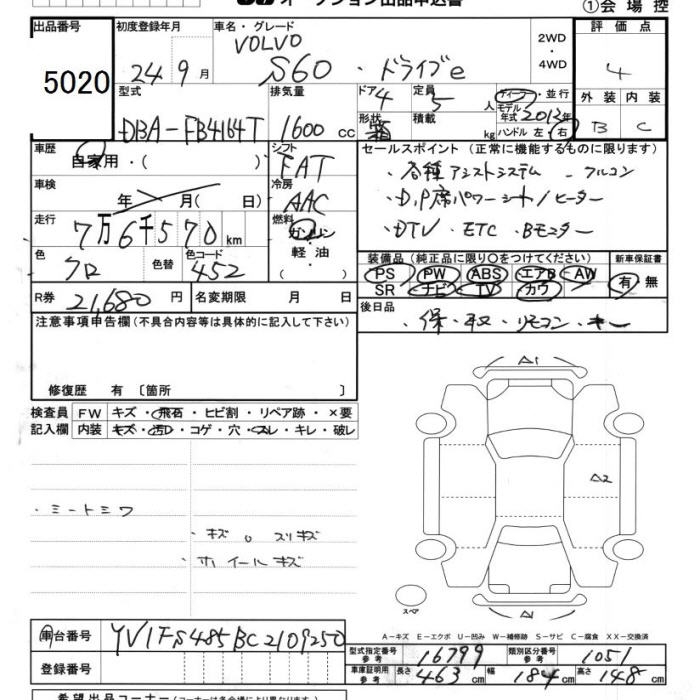 オークション出品申込書
①会場控
出品番号 初度登録年月 車名・グレード 評価点
5020 24年9月 VOLVO S60 ・ ドライブe 2WD・4WD 4
型式 排気量 ドア 定員 ディーラー・並行 外装 内装
DBA-FB4164T 1600cc 4 5人 モデル年式 2012年 B C
形状 箱 積載 kg ハンドル 左・右
車歴 シフト セールスポイント(正常に機能するものに限ります)
自家用・( ) FAT ・各種アシストシステム ・フルコン
車検 冷房 ・D,P席パワーシート/ヒーター
年 月( 日) AAC ・DTV ・ETC ・Bモニター
走行 燃料
7万6千570km ガソリン
軽油
・( )
色 色替 色コード 装備品(純正品に限り○をつけてください) 新車保証書
クロ 452 PS PW ABS エアB AW 有・無
SR ナビ TV カワ
R券 21,680円 名変期限 月 日 後日品
・保・取・リモコン・キー
注意事項申告欄(不具合内容等は具体的に記入して下さい)
修復歴 有〔箇所 〕
検査員 FW キズ・飛石・ヒビ割・リペア跡・×要
記入欄 内装 キズ・汚レ・コゲ・穴・スレ・キレ・破レ
A1
A2
・シートシワ
・キズ。スリキズ
・ホイールキズ
スペア
A1
A-キズ E-エクボ U-凹み W-補修跡 S-サビ C-腐食 XX-交換済
車台番号 YV1FS485BC2109250
型式指定番号 参考 16799 類別区分番号 参考 1051
登録番号 車庫証明用 参考 長さ 463cm 幅 184cm 高さ 148cm
希望出品コーナー(コーナーは各会場により異なります)